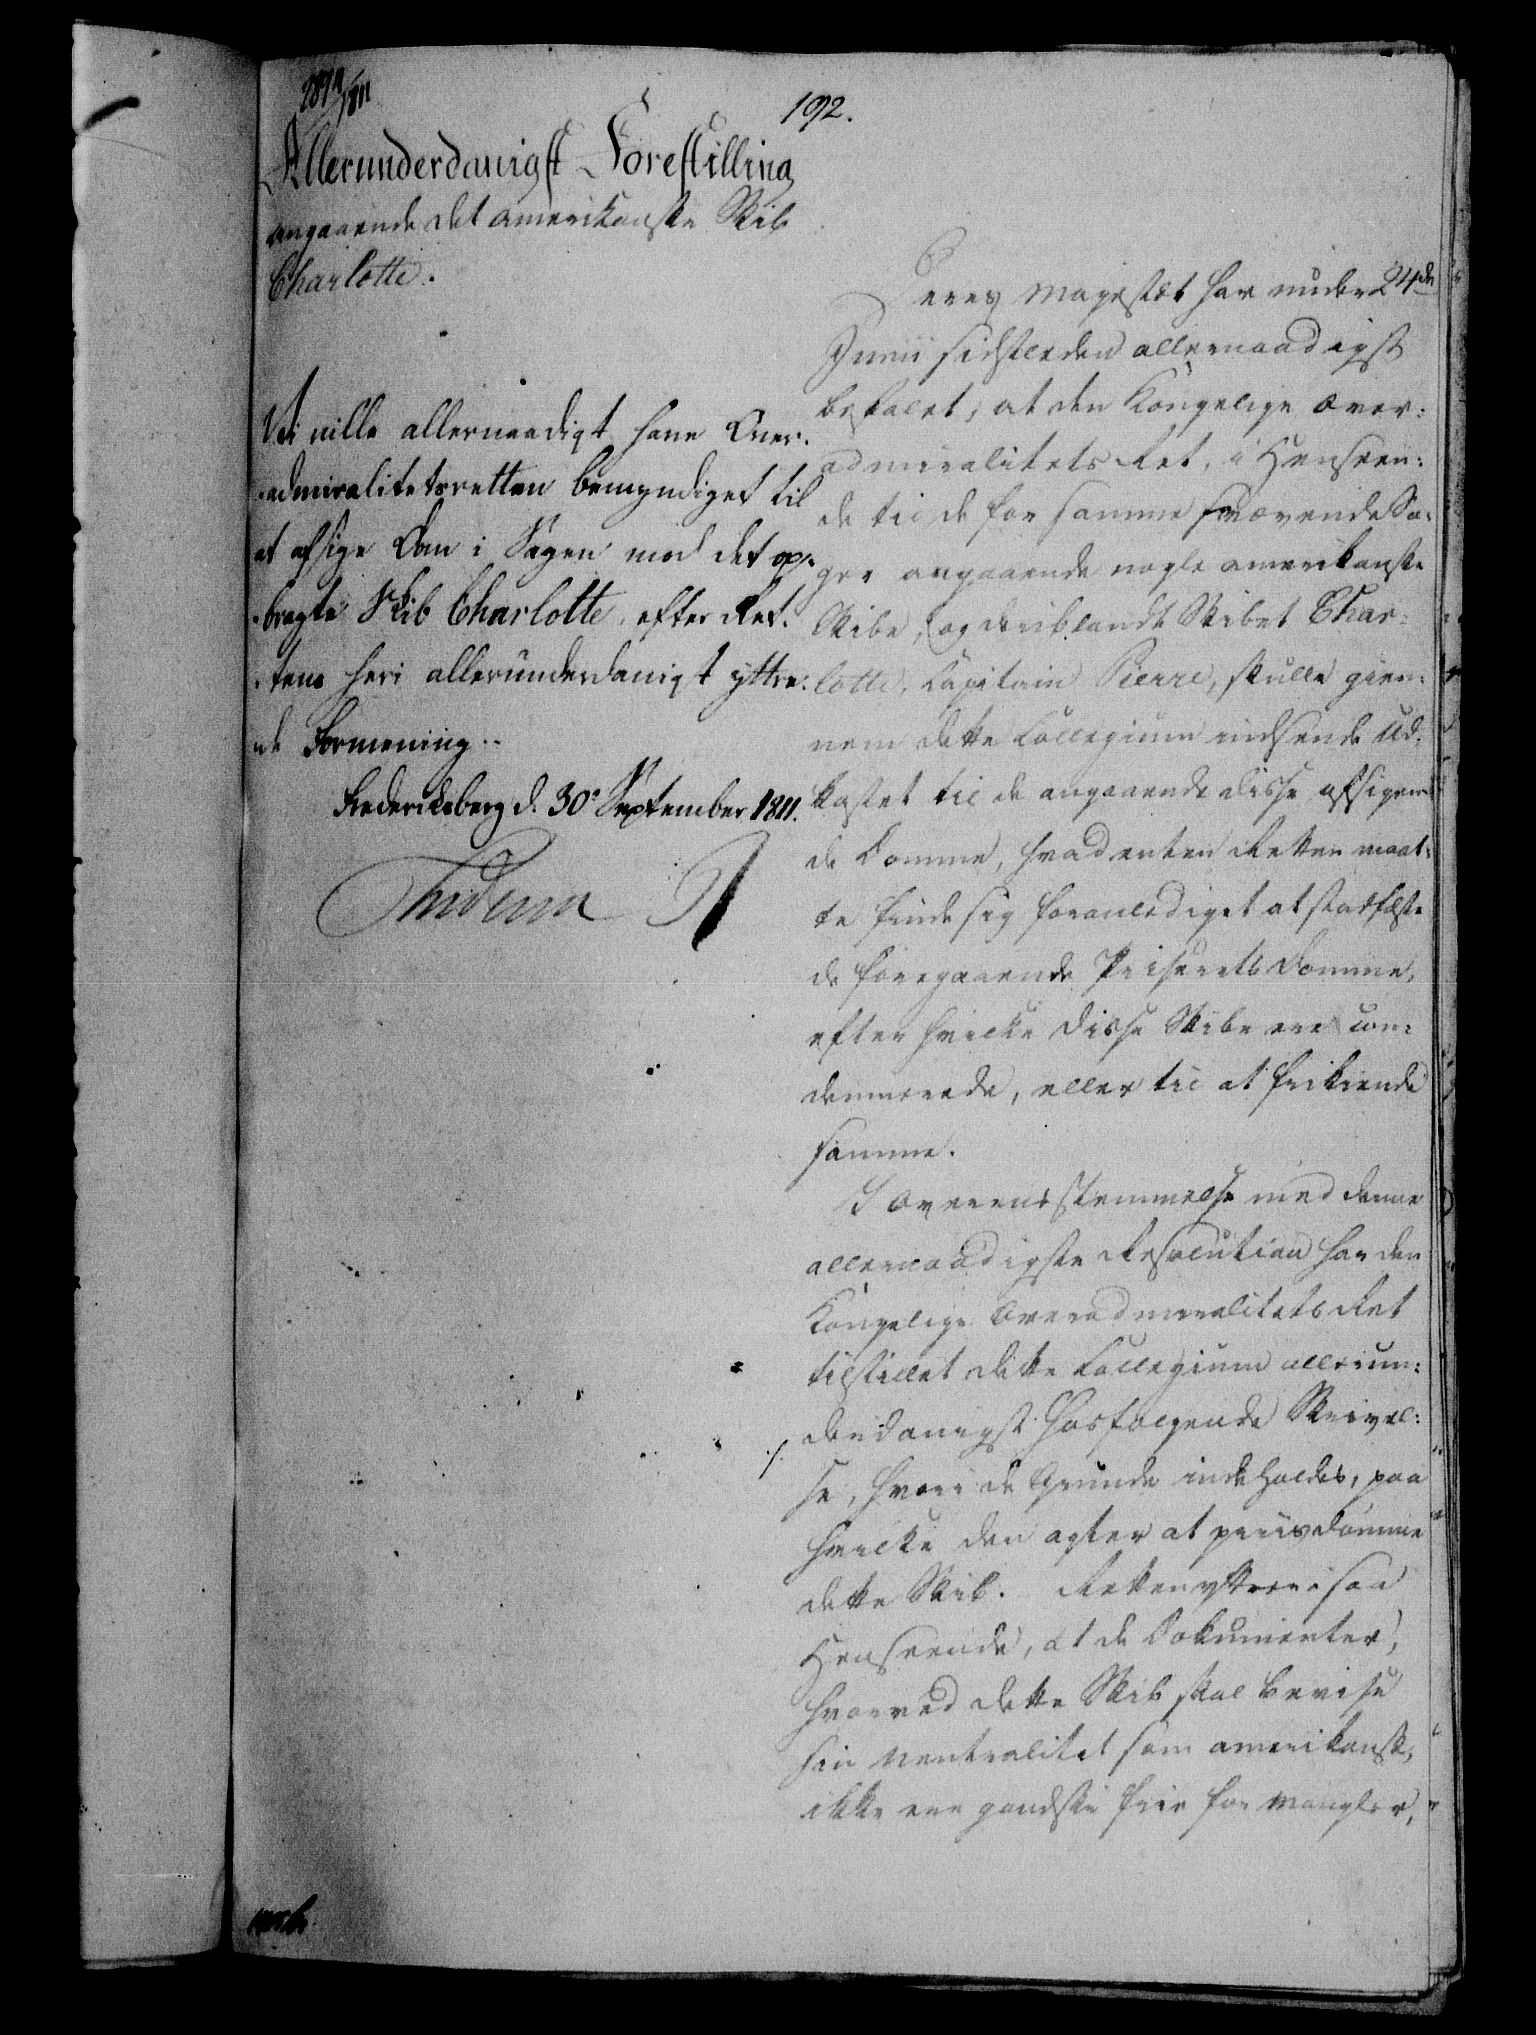 192.
Allerunderdanigst Forestilling
angaaende det amerikanske Skib
Charlotte.
Vi ville allernaadigst have Over-
admiralitetsretten bemyndiget til
at afsige Dom i Sagen mod det op-
bragte Skib Charlotte, efter Ret-
tens heri allerunderdanigst yttre-
de Formening.
Frederiksberg d. 30te September 1811.
Deres Majestæt har under 24de
Junii sidstleden allernaadigst
befalet, at den Kongelige Over-
admiralitets Ret, i Henseen-
de til de for samme svævende Sa-
ger angaaende nogle amerikanske
Skibe, og deriblandt Skibet Char-
lotte, Capitain Pierre, skulle gien-
nem dette Collegium indsende Ud-
kastet til de angaaende disse afsigen-
de Domme, hvad enten Retten maat-
te finde sig foranlediget at stadfæste
de foregaaende Priserets Domme,
efter hvilke disse Skibe ere con-
demnerede, eller til at frikiende
samme.
I Overeensstemmelse med denne
allernaadigste Resolution har den
Kongelige Overadmiralitets Ret
tilstillet dette Collegium allerun-
derdanigst hosfølgende Skrivel-
se, hvori de Grunde indeholdes, paa
hvilke den agter at priisdømme
dette Skib. Retten yttrer i saa
Henseende, at de Dokumenter,
hvorved dette Skib skal bevise
sin Neutralitet som amerikansk,
ikke ere gandske frie for Mangler,